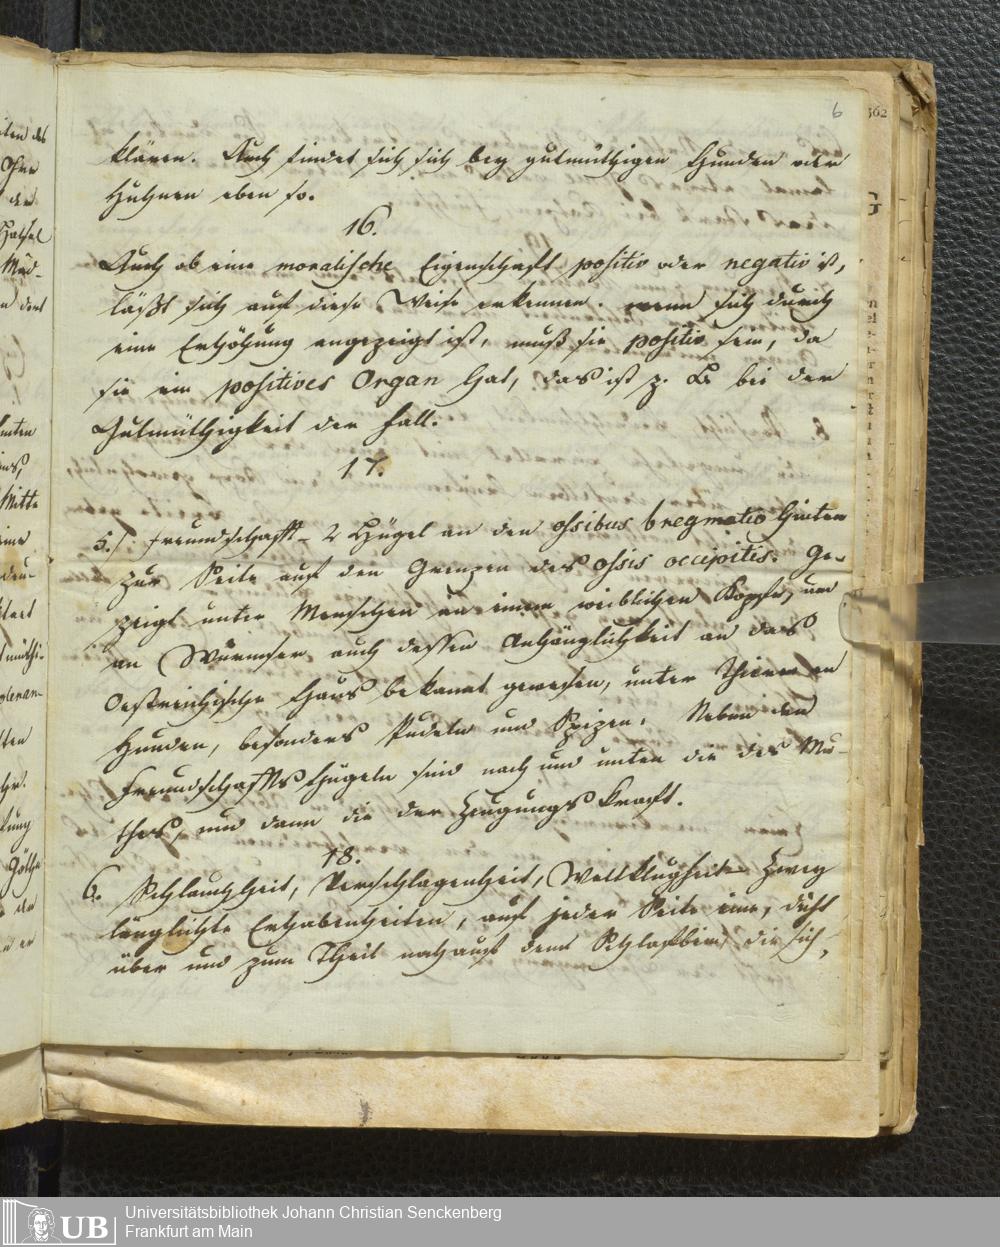 6
klären. Auch findet sich sich bey gutmüthigen Hunden oder
Huhnen eben so.
16.
Auch ob eine moralische Eigenschaft positiv oder negativ ist,
läßt sich auf diese Weise erkennen. wenn sich durch
eine Erhöhung angezeigt ist, muß sie positiv sein, da
sie ein positives Organ hat, das ist z. B. bei der
Gutmüthigkeit der Fall.
17.
5.) Freundschafft – 2 Hügel an den ossibus bregmatis hinten
zur Seite auf den Grenzen des ossis occipitis. Ge-
zeigt unter Menschen an einem weiblichen Kopfe, und
an Wurmser auch dessen Anhänglichkeit an das
Oestreichische Haus bekannt gewesen, unter Thieren an
Hunden, besonders Pudeln und Spizen. Neben den
Freundschaffts Hügeln sind nach und unten die des Mu-
thes, und dann die der Zeugungskraft.
18.
6. Schlauheit, Verschlagenheit, Weltklugheit. Zwey
länglichte Erhabenheiten, auf jeder Seite eine, dicht
über und zum Theil noch auf dem Schlafbein, die sich,
362
Universitätsbibliothek Johann Christian Senckenberg
Frankfurt am Main
UB